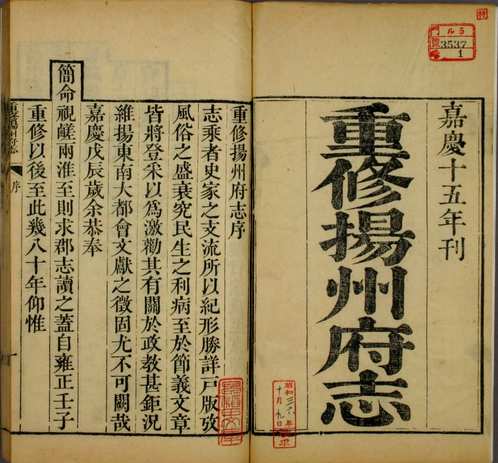 嘉慶十五年刊
重修揚州府志
ラル
3537
1
昭和
十月九日
重修揚州府志序
志乘者史家之支流所以紀形勝詳戸版攷
風俗之盛衰究民生之利病至於節義文章
皆將登采以為激勸其有關於政教甚鉅況
維揚東南大都會文獻之徵固尤不可闕哉
嘉慶戊辰歲余恭奉
簡命視鹺兩淮至則求郡志讀之蓋自雍正壬子
重修以後至此幾八十年仰惟
序